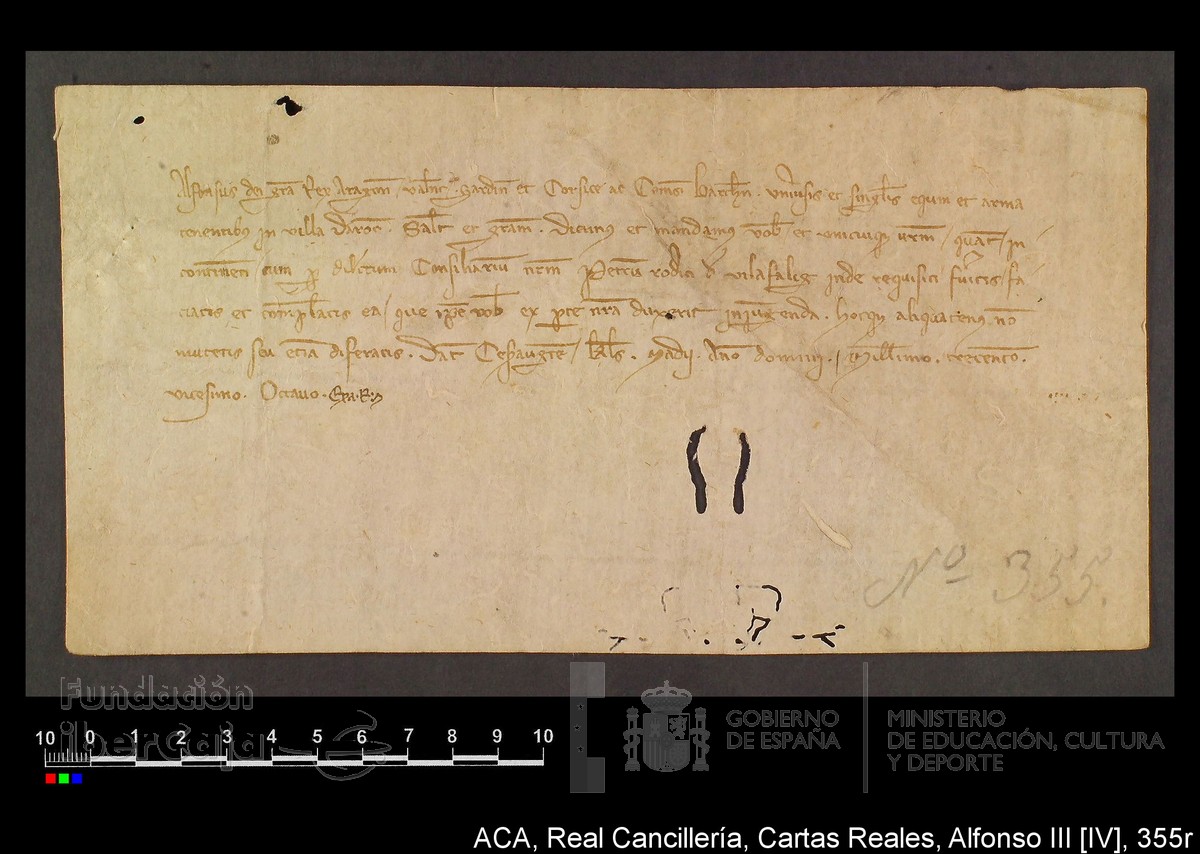 Alfonsus dei gra Rex Aragon, Valenc, Sardin et Corsice ac Comes Barchn. Universis et singlis equm et arma
tenentibus in villa Daroc. Saltm et gram. Dicimus et mandamus vob et unicuiq vrm, quat, in
continenti, cum p dilectum Consiliarium nrm Petru rodici d vilafaleg inde requisiti fueritis, fa
ciatis et compleatis ea, que ipse vob ex parte nra duxerit injungenda. hocq aliquatenus no
mutetis seu etia diferatis. Dat Cesarguste, kls. Madij. Anno domini, Millimo. trecento.
vicesimo. Octavo. Exa. R;
Nº 355.
Fundación
ibercaja
10 0 1 2 3 4 5 6 7 8 9 10
GOBIERNO
DE ESPAÑA
MINISTERIO
DE EDUCACIÓN, CULTURA
Y DEPORTE
ACA, Real Cancillería, Cartas Reales, Alfonso III [IV], 355r